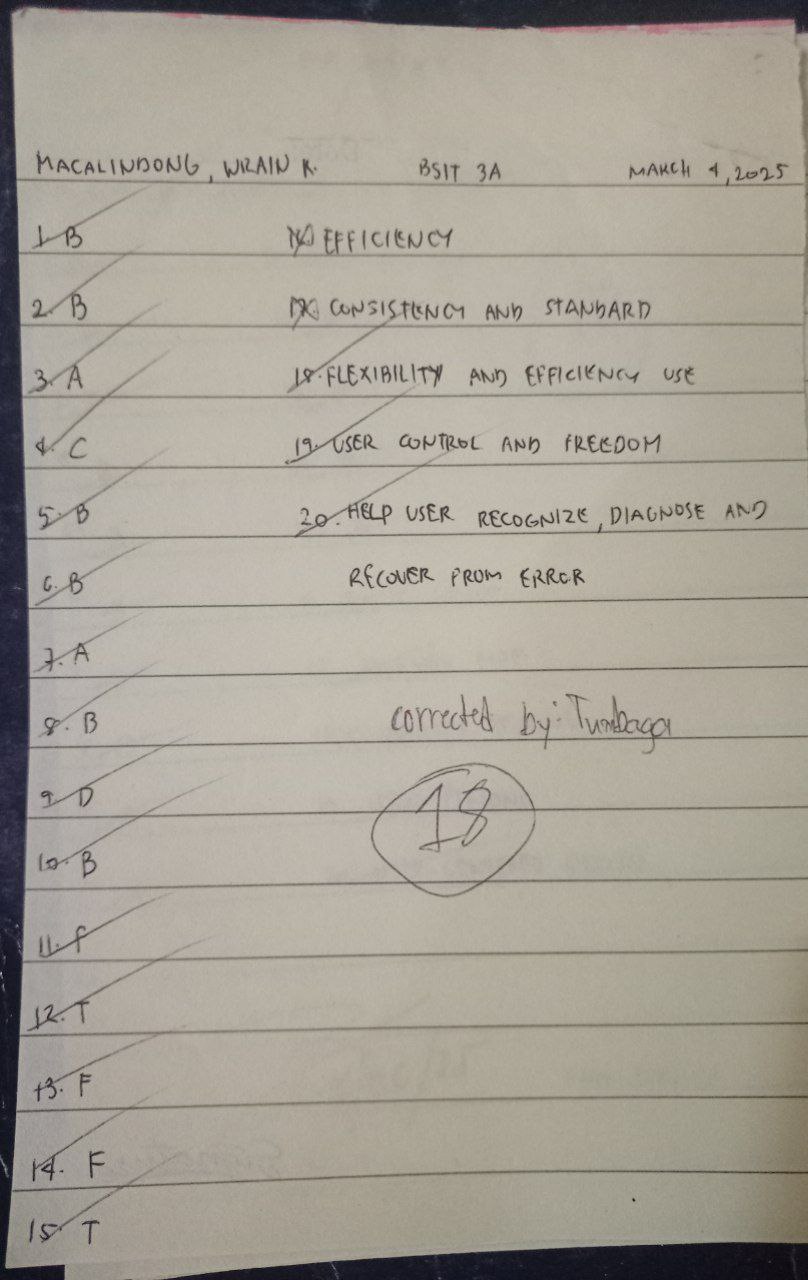 MACALINDONG, WRAIN K. BSIT 3A MARCH 4, 2025
1. B
2. B
3. A
4. C
5. B
6. B
7. A
8. B
9. D
10. B
11. F
12. T
13. F
14. F
15. T
16. EFFICIENCY
17. CONSISTENCY AND STANDARD
18. FLEXIBILITY AND EFFICIENCY USE
19. USER CONTROL AND FREEDOM
20. HELP USER RECOGNIZE, DIAGNOSE AND
RECOVER FROM ERROR
corrected by: Tumbaga
18